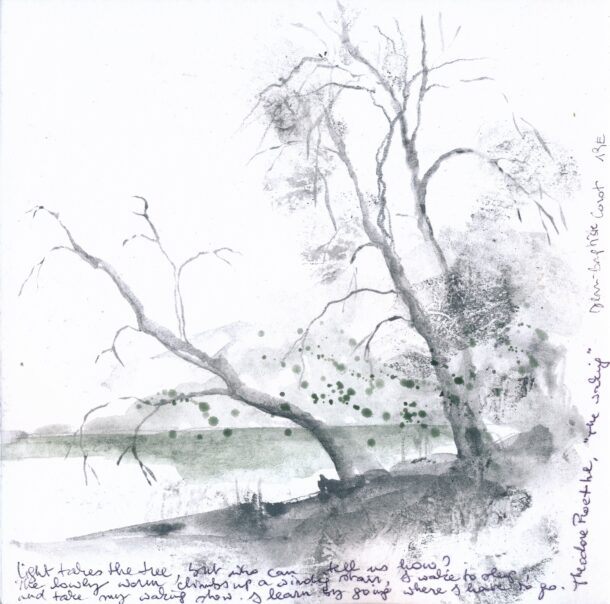 light takes the tree, but who can tell us how?
the lowly worm climbs up a winding stair, I wake to sleep,
and take my waking slow. I learn by going where I have to go.
Theodore Roethke, "The waking"
Jean-Baptiste Corot